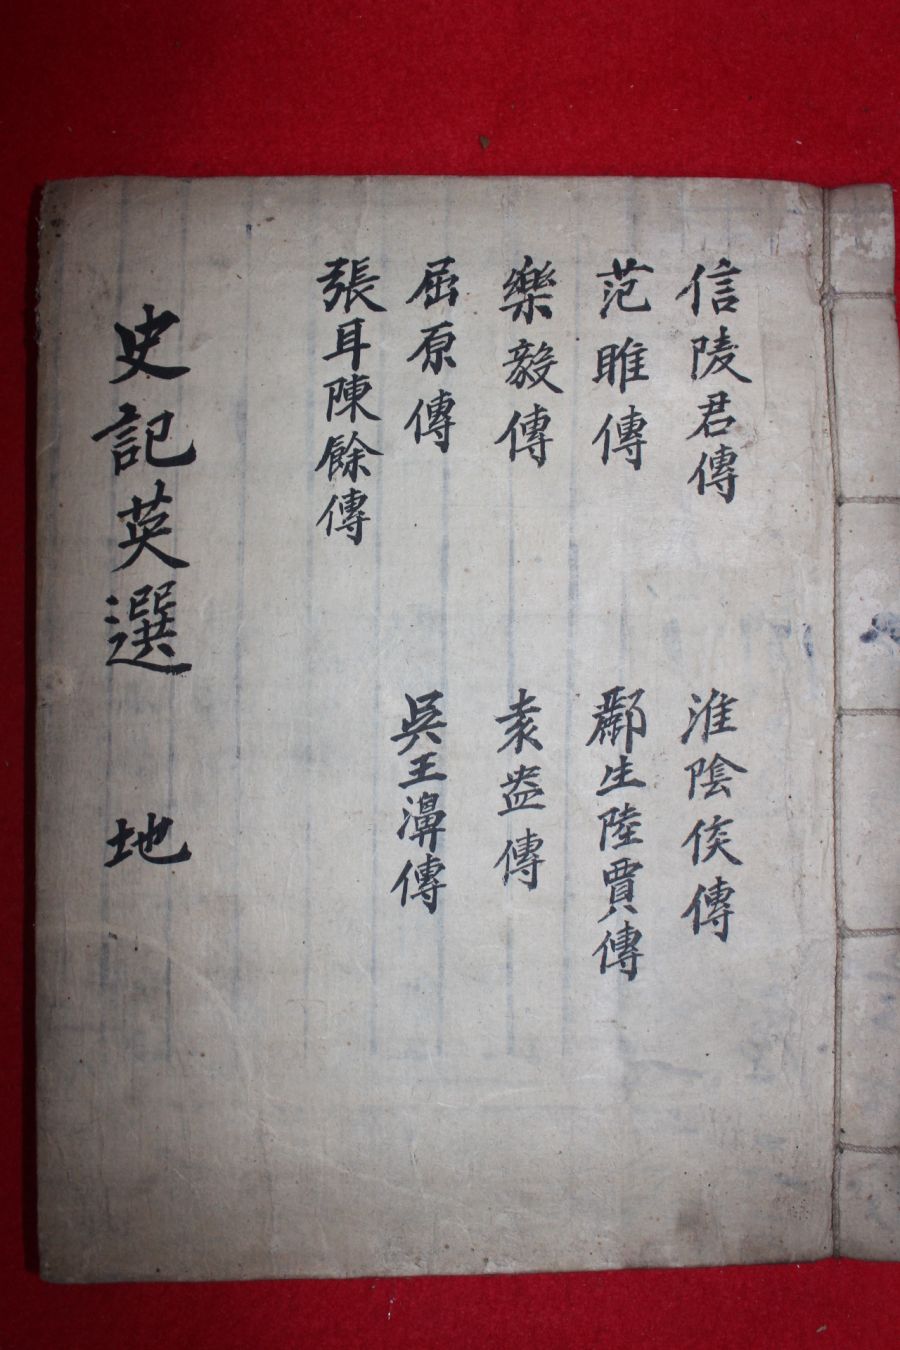 信陵君傳
范雎傳
樂毅傳
屈原傳
張耳陳餘傳
淮陰侯傳
酈生陸賈傳
袁盎傳
吳王濞傳
史記英選 地